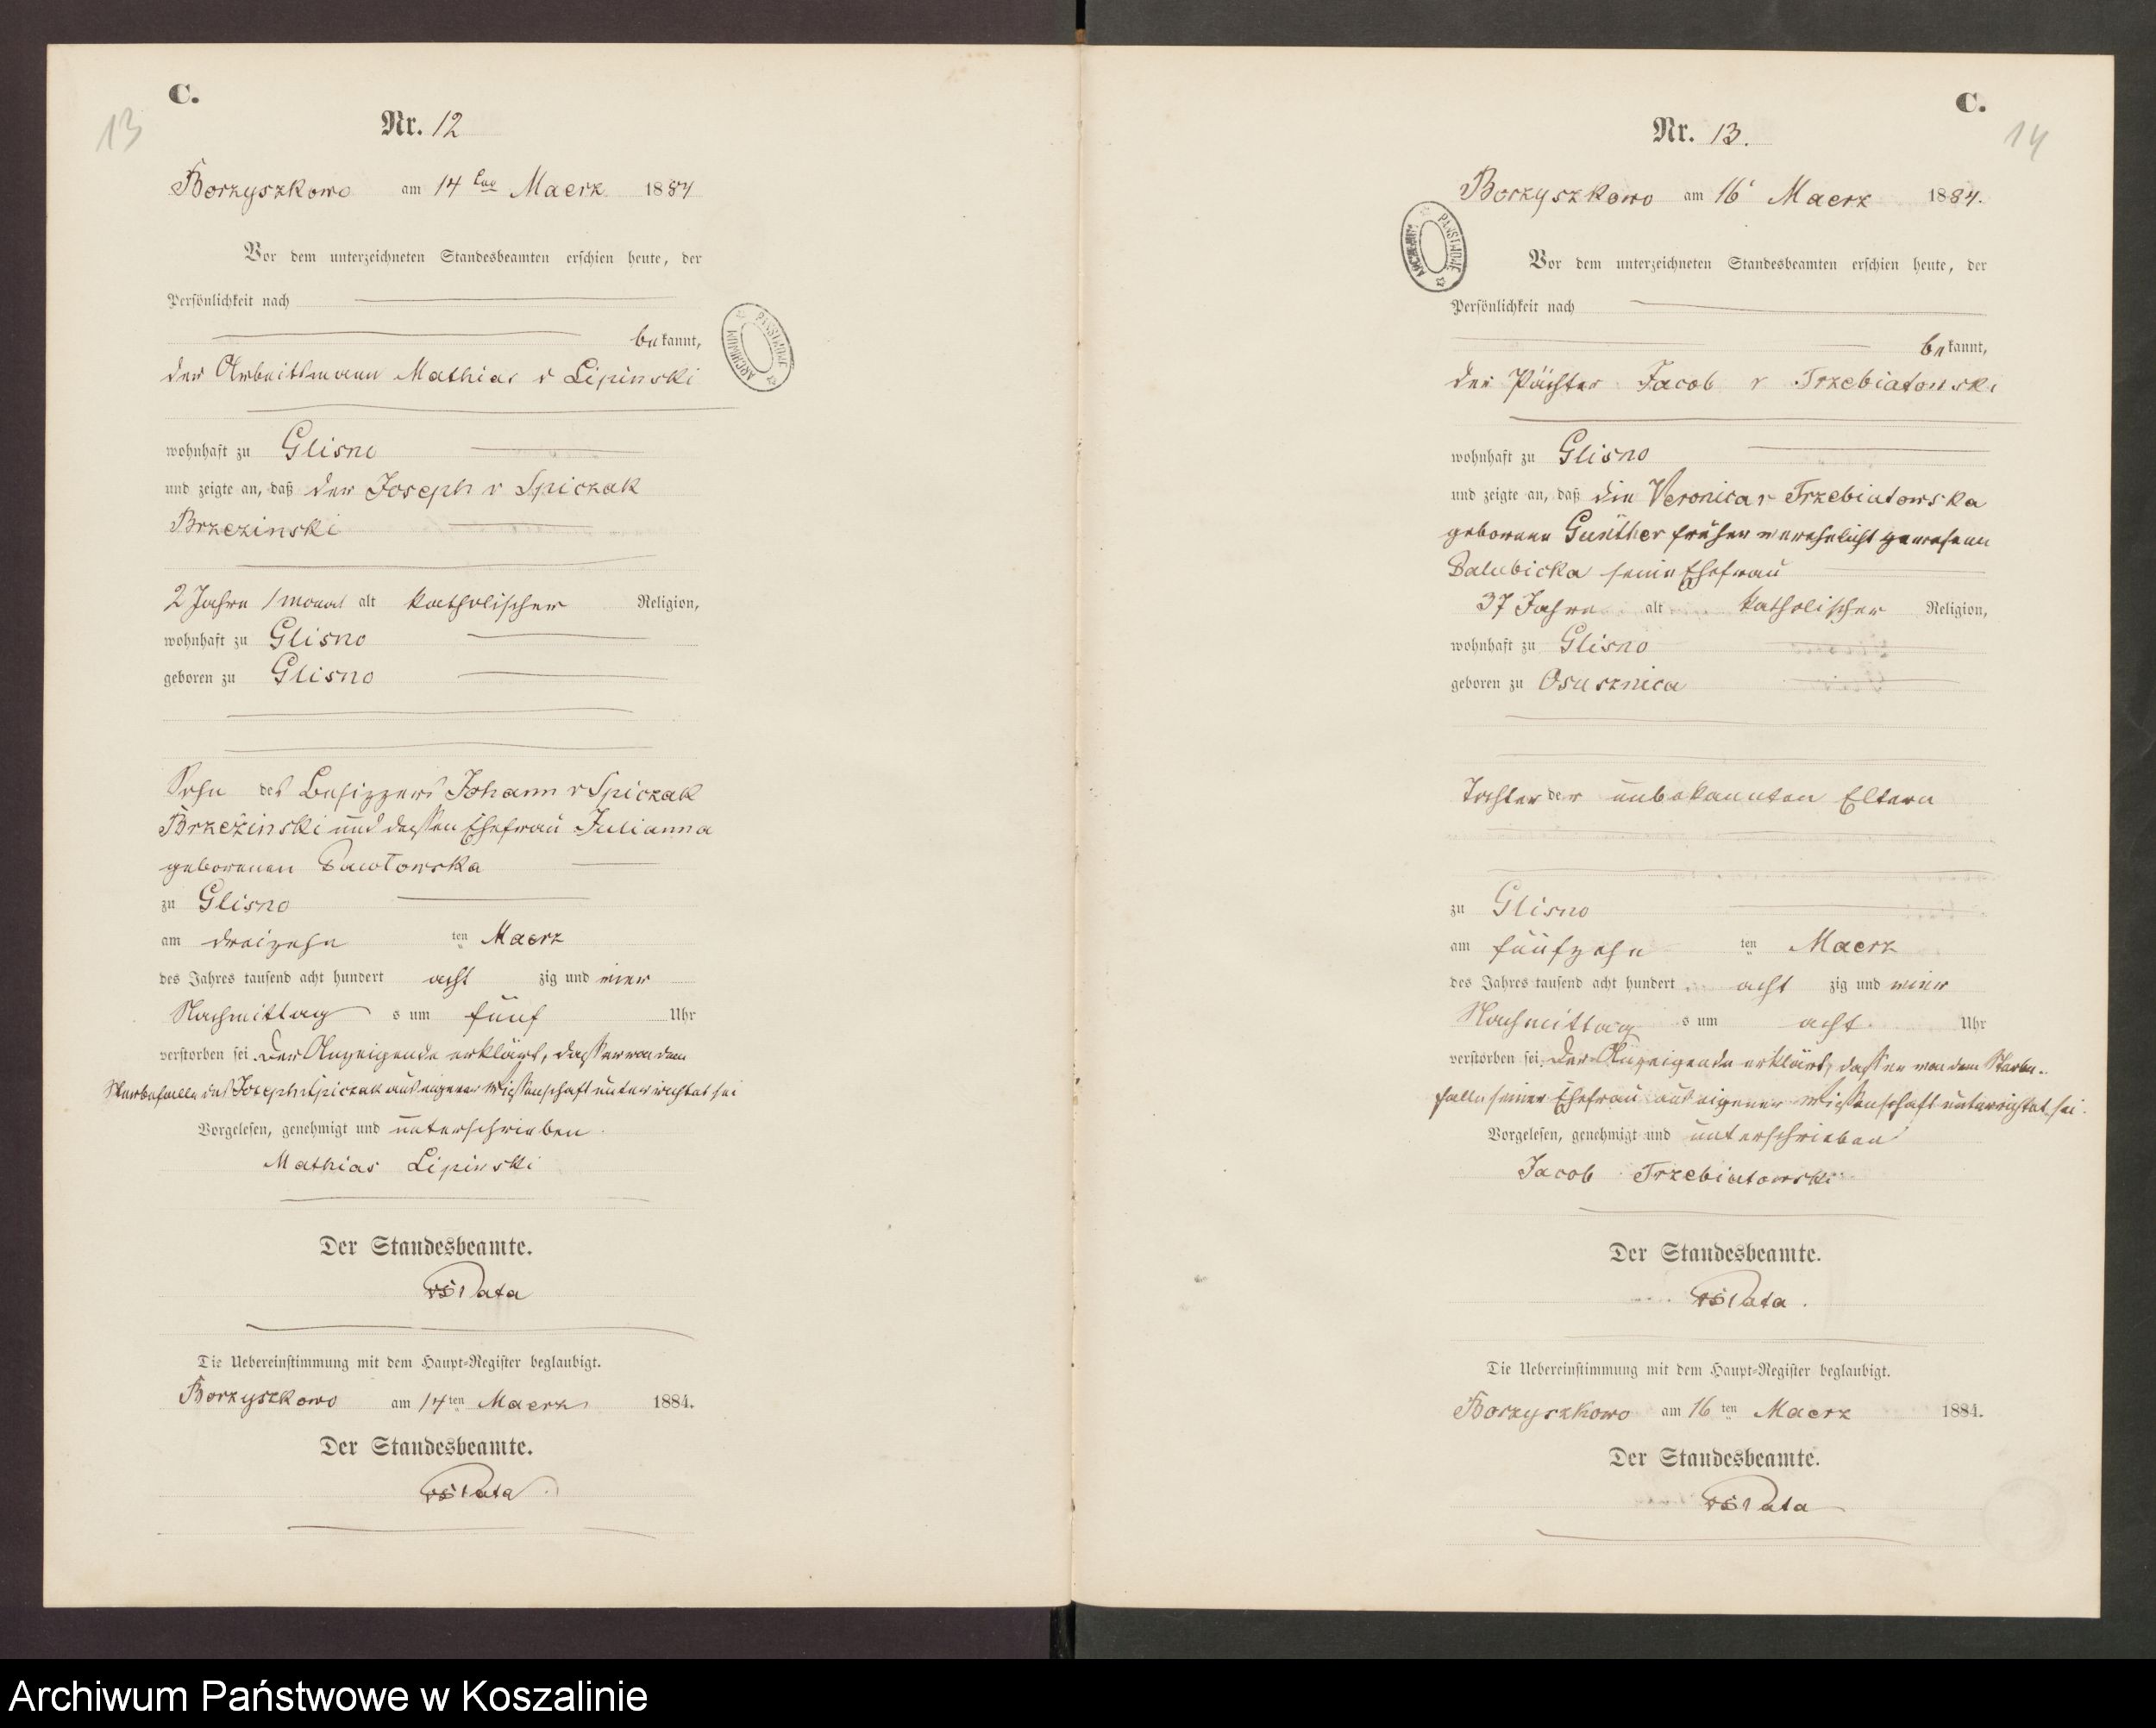 C.
13
Nr. 12
Borzyszkowo am 14 ten Maerz 1884
Vor dem unterzeichneten Standesbeamten erschien heute, der
Persönlichkeit nach
bekannt,
der Arbeitsmann Mathias v Lipinski
wohnhaft zu Glisno
und zeigte an, daß der Joseph v Spiczak
Brzezinski
2 Jahre 1 monat alt katholischer Religion,
wohnhaft zu Glisno
geboren zu Glisno
Sohn des Besizzers Johann v Spiczak
Brzezinski und dessen Ehefrau Julianna
geborenen Pawłowska
zu Glisno
am dreizehn ten Maerz
des Jahres tausend acht hundert acht zig und vier
Nachmittag s um fünf Uhr
verstorben sei. Der Anzeigende erklärt, dass er von dem
Sterbefalle des Joseph v Spiczak aus eigener Wissenschaft unterrichtet sei
Vorgelesen, genehmigt und unterschrieben
Mathias Lipinski
Der Standesbeamte.
Pata
Die Uebereinstimmung mit dem Haupt-Register beglaubigt.
Borzyszkowo am 14 ten Maerz 1884.
Der Standesbeamte.
Pata
ARCHIWUM PAŃSTWOWE
C.
14
Nr. 13.
Borzyszkowo am 16 Maerz 1884.
Vor dem unterzeichneten Standesbeamten erschien heute, der
Persönlichkeit nach
bekannt,
der Pächter Jacob v Trzebiatowski
wohnhaft zu Glisno
und zeigte an, daß die Veronica v Trzebiatowska
geborene Günther früher verehelicht gewesene
Dalubicka seine Ehefrau
37 Jahre alt katholischer Religion,
wohnhaft zu Glisno
geboren zu Osusznica
Tochter der unbekannten Eltern
zu Glisno
am fünfzehn ten Maerz
des Jahres tausend acht hundert acht zig und vier
Nachmittag s um acht Uhr
verstorben sei. Der Anzeigende erklärt, dass er von dem Sterbe-
falle seiner Ehefrau aus eigener Wissenschaft unterrichtet sei.
Vorgelesen, genehmigt und unterschrieben
Jacob Trzebiatowski
Der Standesbeamte.
Pata.
Die Uebereinstimmung mit dem Haupt-Register beglaubigt.
Borzyszkowo am 16 ten Maerz 1884.
Der Standesbeamte.
Pata
ARCHIWUM PAŃSTWOWE
Archiwum Państwowe w Koszalinie